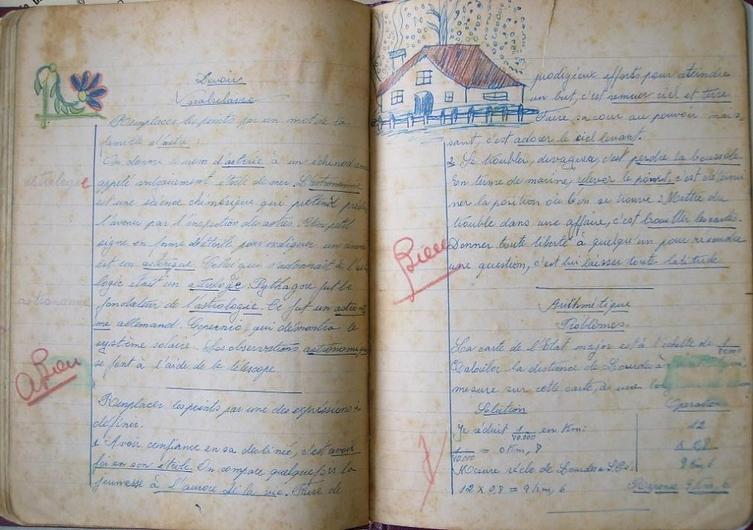 Devoirs
Vocabulaire
Remplacer les points par un mot de la
famille d'astre :
On donne le nom d'astérie à un échinoderme
appelé anciennement étoile de mer. L'astronomie
est une science chimérique qui prétend prédire
l'avenir par l'inspection des astres. Un petit
signe en forme d'étoile pour indiquer un renvoi
est un astérique. Celui qui s'adonnait à l'astro-
logie était un astrologe. Pythagore fut le
fondateur de l'astrologie. Ce fut un astrono-
me allemand. Copernic, qui démontra le
système solaire. Les observations astronomiques
se font à l'aide de le télescope.
astrologue
astronomie
A. Bien
Remplacer les points par une des expressions à
définir.
1. Avoir confiance en sa destinée, c'est avoir
foi en son étoile. On compare quelquefois la
jeunesse à l'aurore de la vie. Faire de
prodigieux efforts pour atteindre
un but, c'est remuer ciel et terre
Faire sa cour au pouvoir nais-
sant, c'est adorer le ciel levant.
2. Se troubler, divaguer, c'est perdre la boussole.
En terme de marine, relever le point, c'est détermi
ner la position où l'on se trouve. Mettre du
trouble dans une affaire, c'est brouiller les cartes.
Donner toute liberté à quelqu'un pour résoudre
une question, c'est lui laisser toute latitude
Bien
Arithmétique
Problèmes.
La carte de l'Etat major est à l'échelle de 1
Calculer la distance de Lourdes à
mesure sur cette carte, à une
Solution
Opération
Je réduit 1/10.000 en Km:
12
1/10.000 = 0 Km, 8
x 0,8
Mesure réelle de Lourdes
9 Km, 6
12 x 0,8 = 9 Km, 6
Réponse 9 Km, 6